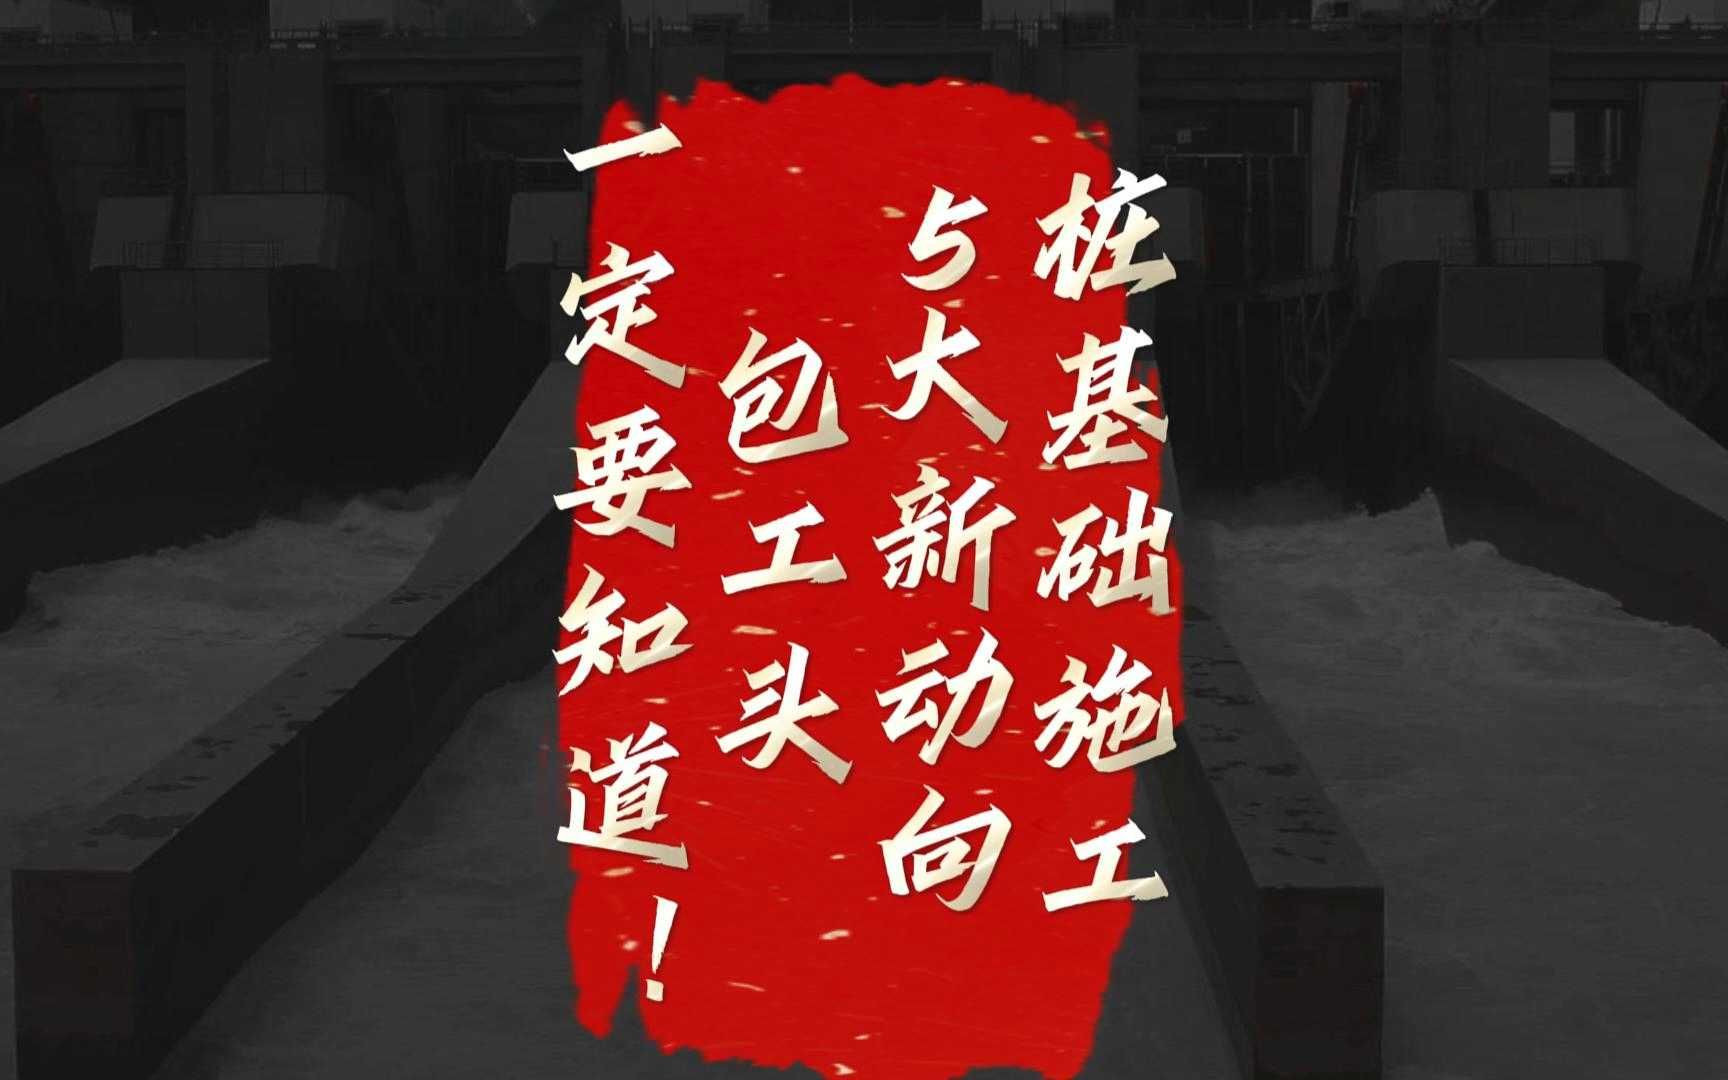 桩基础施工
5大新动向
包工头
一定要知道！